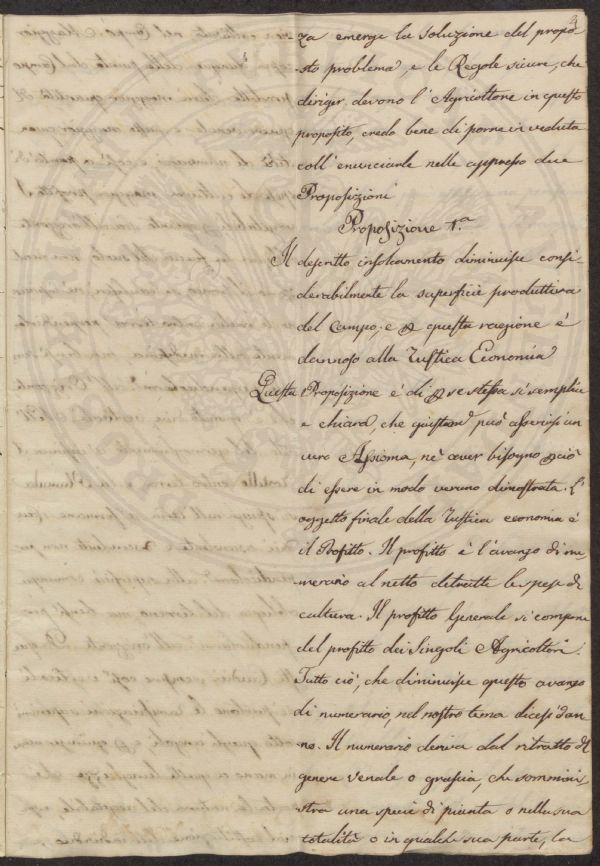 9
za emerge la soluzione del propo-
sto problema, e le Regole sicure, che
diriger devono l'Agricoltore in questo
proposito, credo bene di porne in veduta
coll'enunciarle nelle appresso due
Proposizioni
Proposizione 1.a
Il descritto insolcamento diminuisce consi-
derabilmente la superficie produttiva
del Campo; e p questa ragione è
dannoso alla Rustica Economia
Questa Proposizione è di p se stessa sì semplice
e chiara, che può asserirsi un
vero Assioma, nè aver bisogno p ciò
di essere in modo veruno dimostrata. L'
oggetto finale della Rustica economia è
il Profitto. Il profitto è l'avanzo di nu-
merario al netto detratte le spese di
cultura. Il profitto Generale si compone
del profitto dei Singoli Agricoltori.
Tutto ciò, che diminuisce questo avanzo
di numerario, nel nostro tema dicesi dan-
no. Il numerario deriva dal ritratto del
genere venale o grascia, che sommini-
stra una specie di pianta o nella sua
totalità o in qualche sua parte, la